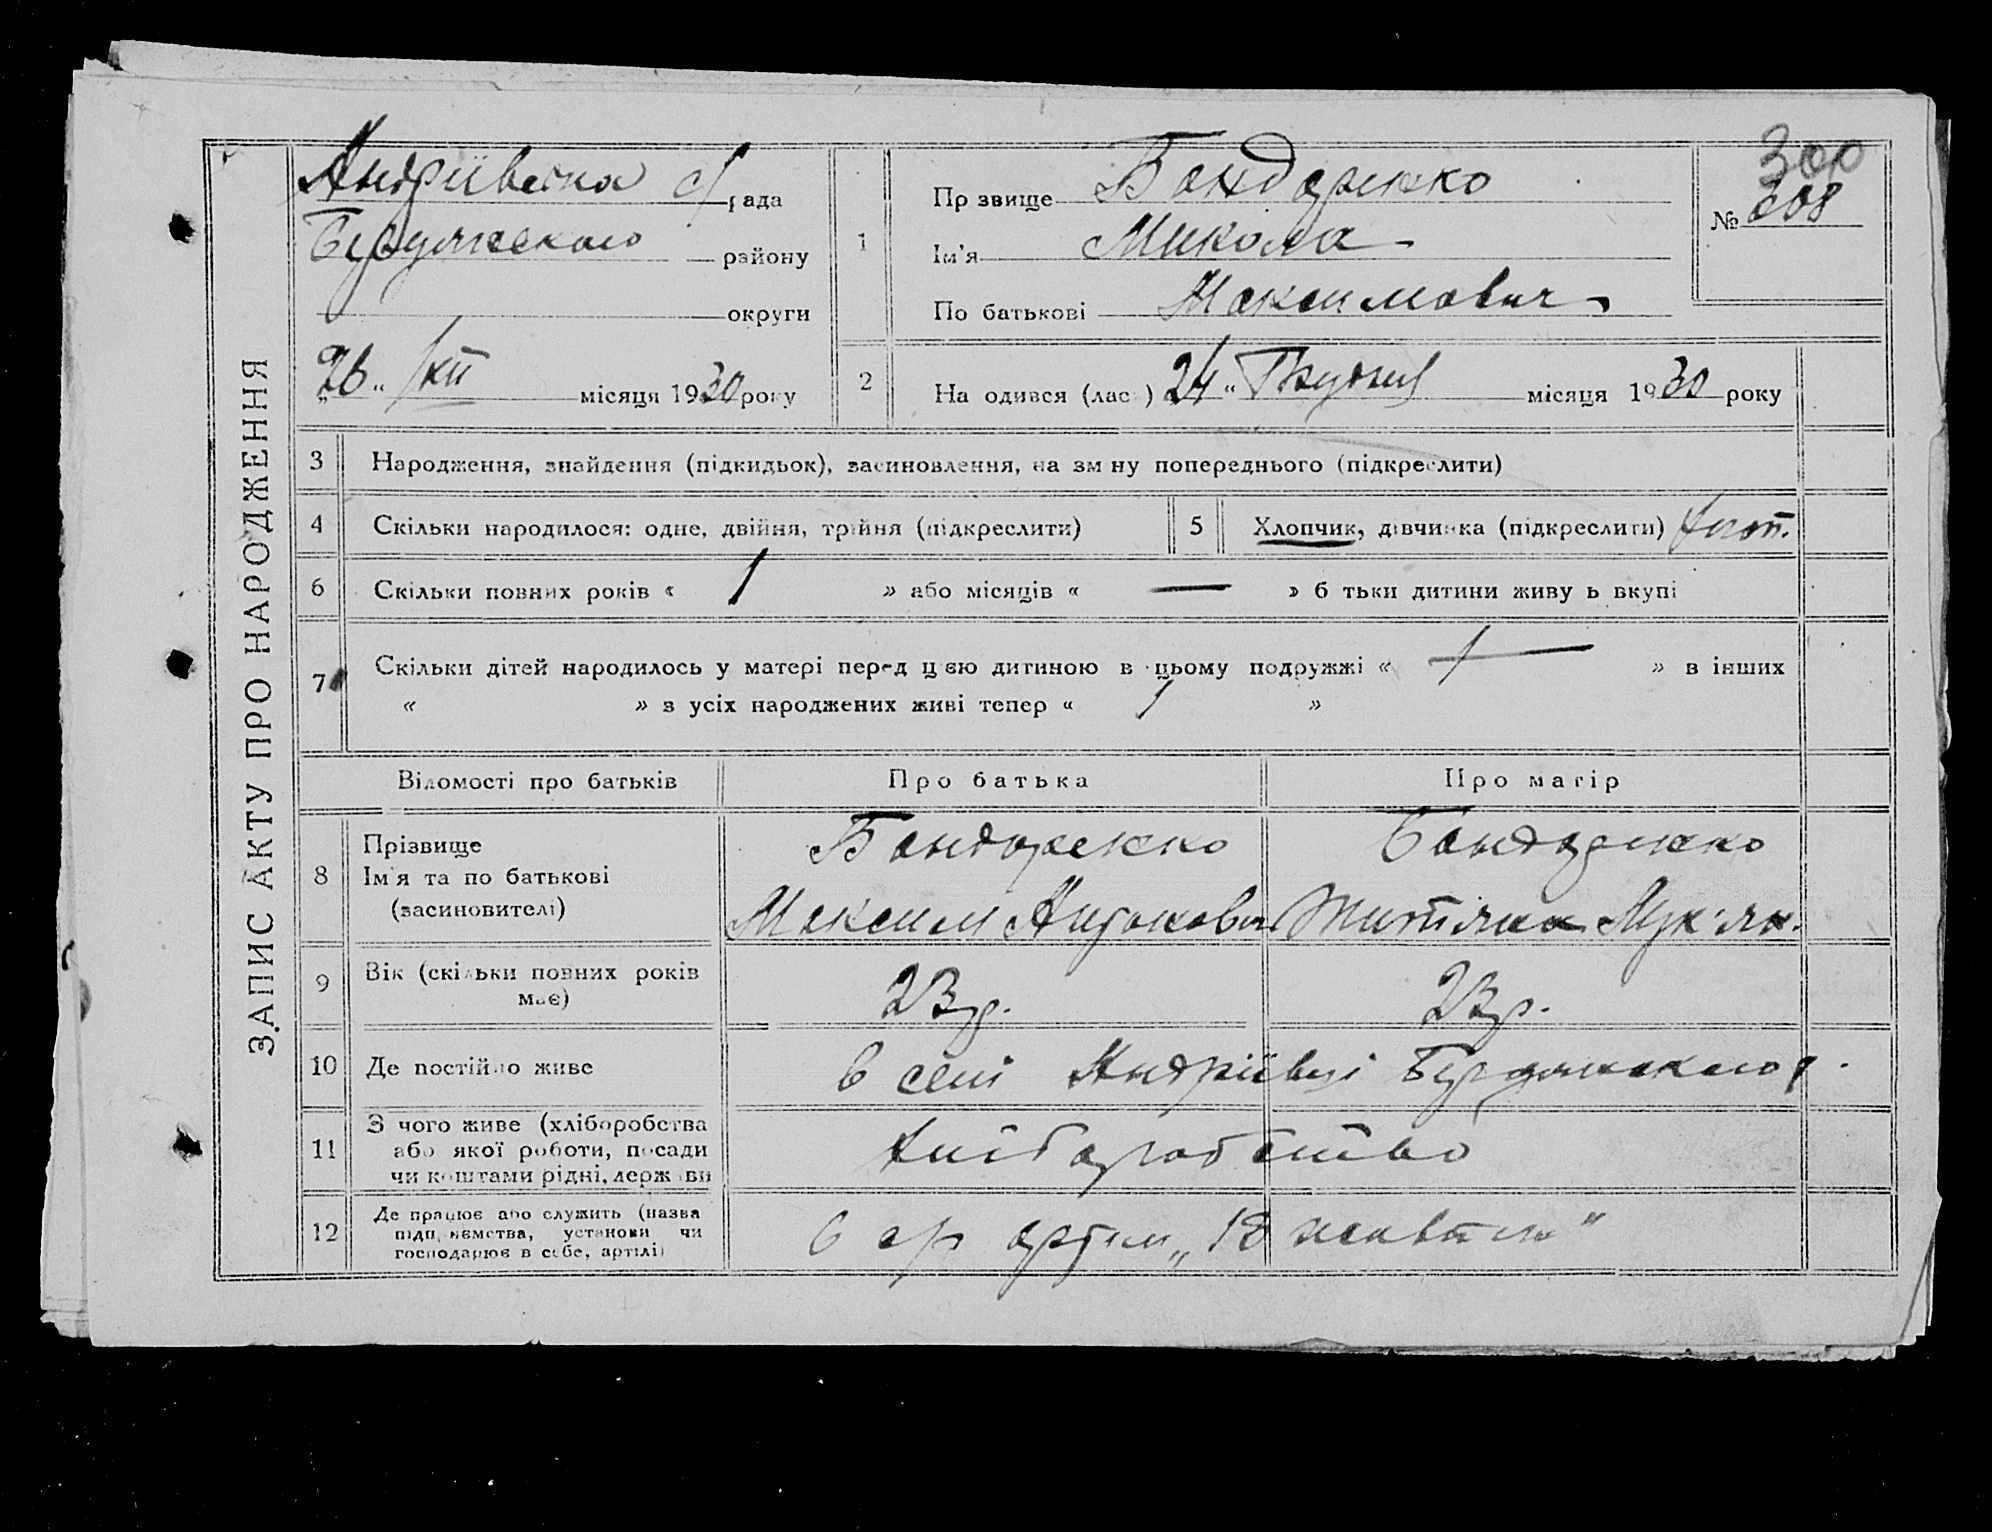 ЗАПИС АКТУ ПРО НАРОДЖЕННЯ
Андріївська с/рада
Бердянського району
округи
"26" XII місяця 1930 року
300
№ 208
1 Прізвище Бондаренко
Ім'я Микола
По батькові Максимович
2 Народився (лася) 24 "Грудня місяця 1930 року
3 Народження, знайдення (підкидьок), засиновлення, на зміну попереднього (підкреслити)
4 Скільки народилося: одне, двійня, трійня (підкреслити)
5 Хлопчик, дівчинка (підкреслити) хлоп.
6 Скільки повних років « 1 » або місяців « — » батьки дитини живуть вкупі
7 Скільки дітей народилось у матері перед цією дитиною в цьому подружжі « 1 — » в інших
« » з усіх народжених живі тепер « 1 »
Відомості про батьків Про батька Про матір
8 Прізвище
Ім'я та по батькові
(засиновителі)
Бондаренко
Максим Антонович
Бондаренко
Лук'ян.
9 Вік (скільки повних років
має)
23 р.
23 р.
10 Де постійно живе
в селі Андріївці Бердянського р.
11 З чого живе (хліборобства
або якої роботи, посади
чи коштами рідні, держави
хліборобство
12 Де працює або служить (назва
підприємства, установи чи
господарює в себе, артілі)
в с/г артіли „18 жовтня"